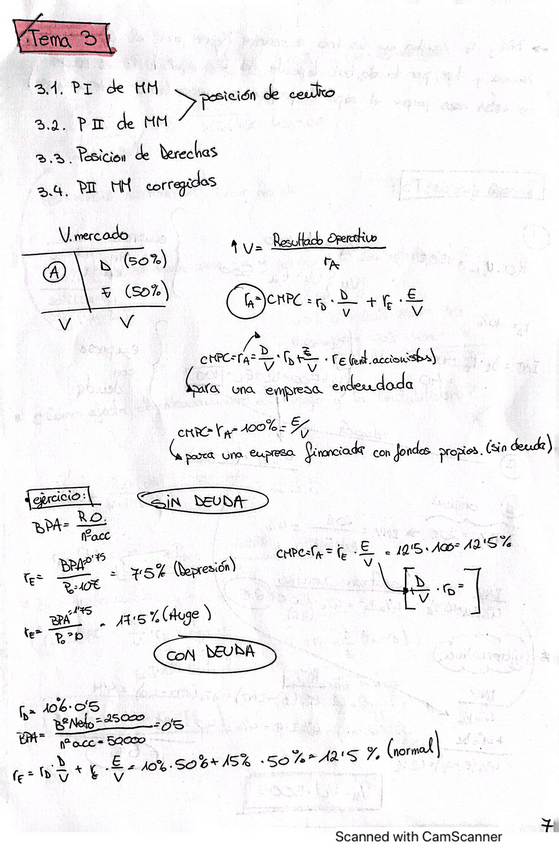 Tema 3
3.1. PI de MM
3.2. PII de MM
posición de centro
3.3. Posicion de Derechas
3.4. PII MM corregidas
V. mercado
A
D (50%)
E (50%)
V V
↑ V = Resultado Operativo / rA
rA = CMPC = rD · D/V + rE · E/V
CMPC = rA = D/V · rD + E/V · rE (rent. accionistas)
para una empresa endeudada
CMPC = rA = 100% = E/V
para una empresa financiada con fondos propios. (sin deuda)
ejercicio:
SIN DEUDA
BPA = R.O. / nº acc
rE = BPA = 0'75 / P0 = 10€ = 7'5% (Depresión)
CMPC = rA = rE · E/V = 12'5 · 100 = 12'5%
[D/V · rD = ]
rE = BPA = 1'75 / P0 = 10 = 17'5% (Auge)
CON DEUDA
rD = 10% · 0'5
BPA = Bº Neto = 25000 / nº acc = 50000 = 0'5
rE = rD · D/V + rE · E/V = 10% · 50% + 15% · 50% = 12'5 % (normal)
7
Scanned with CamScanner